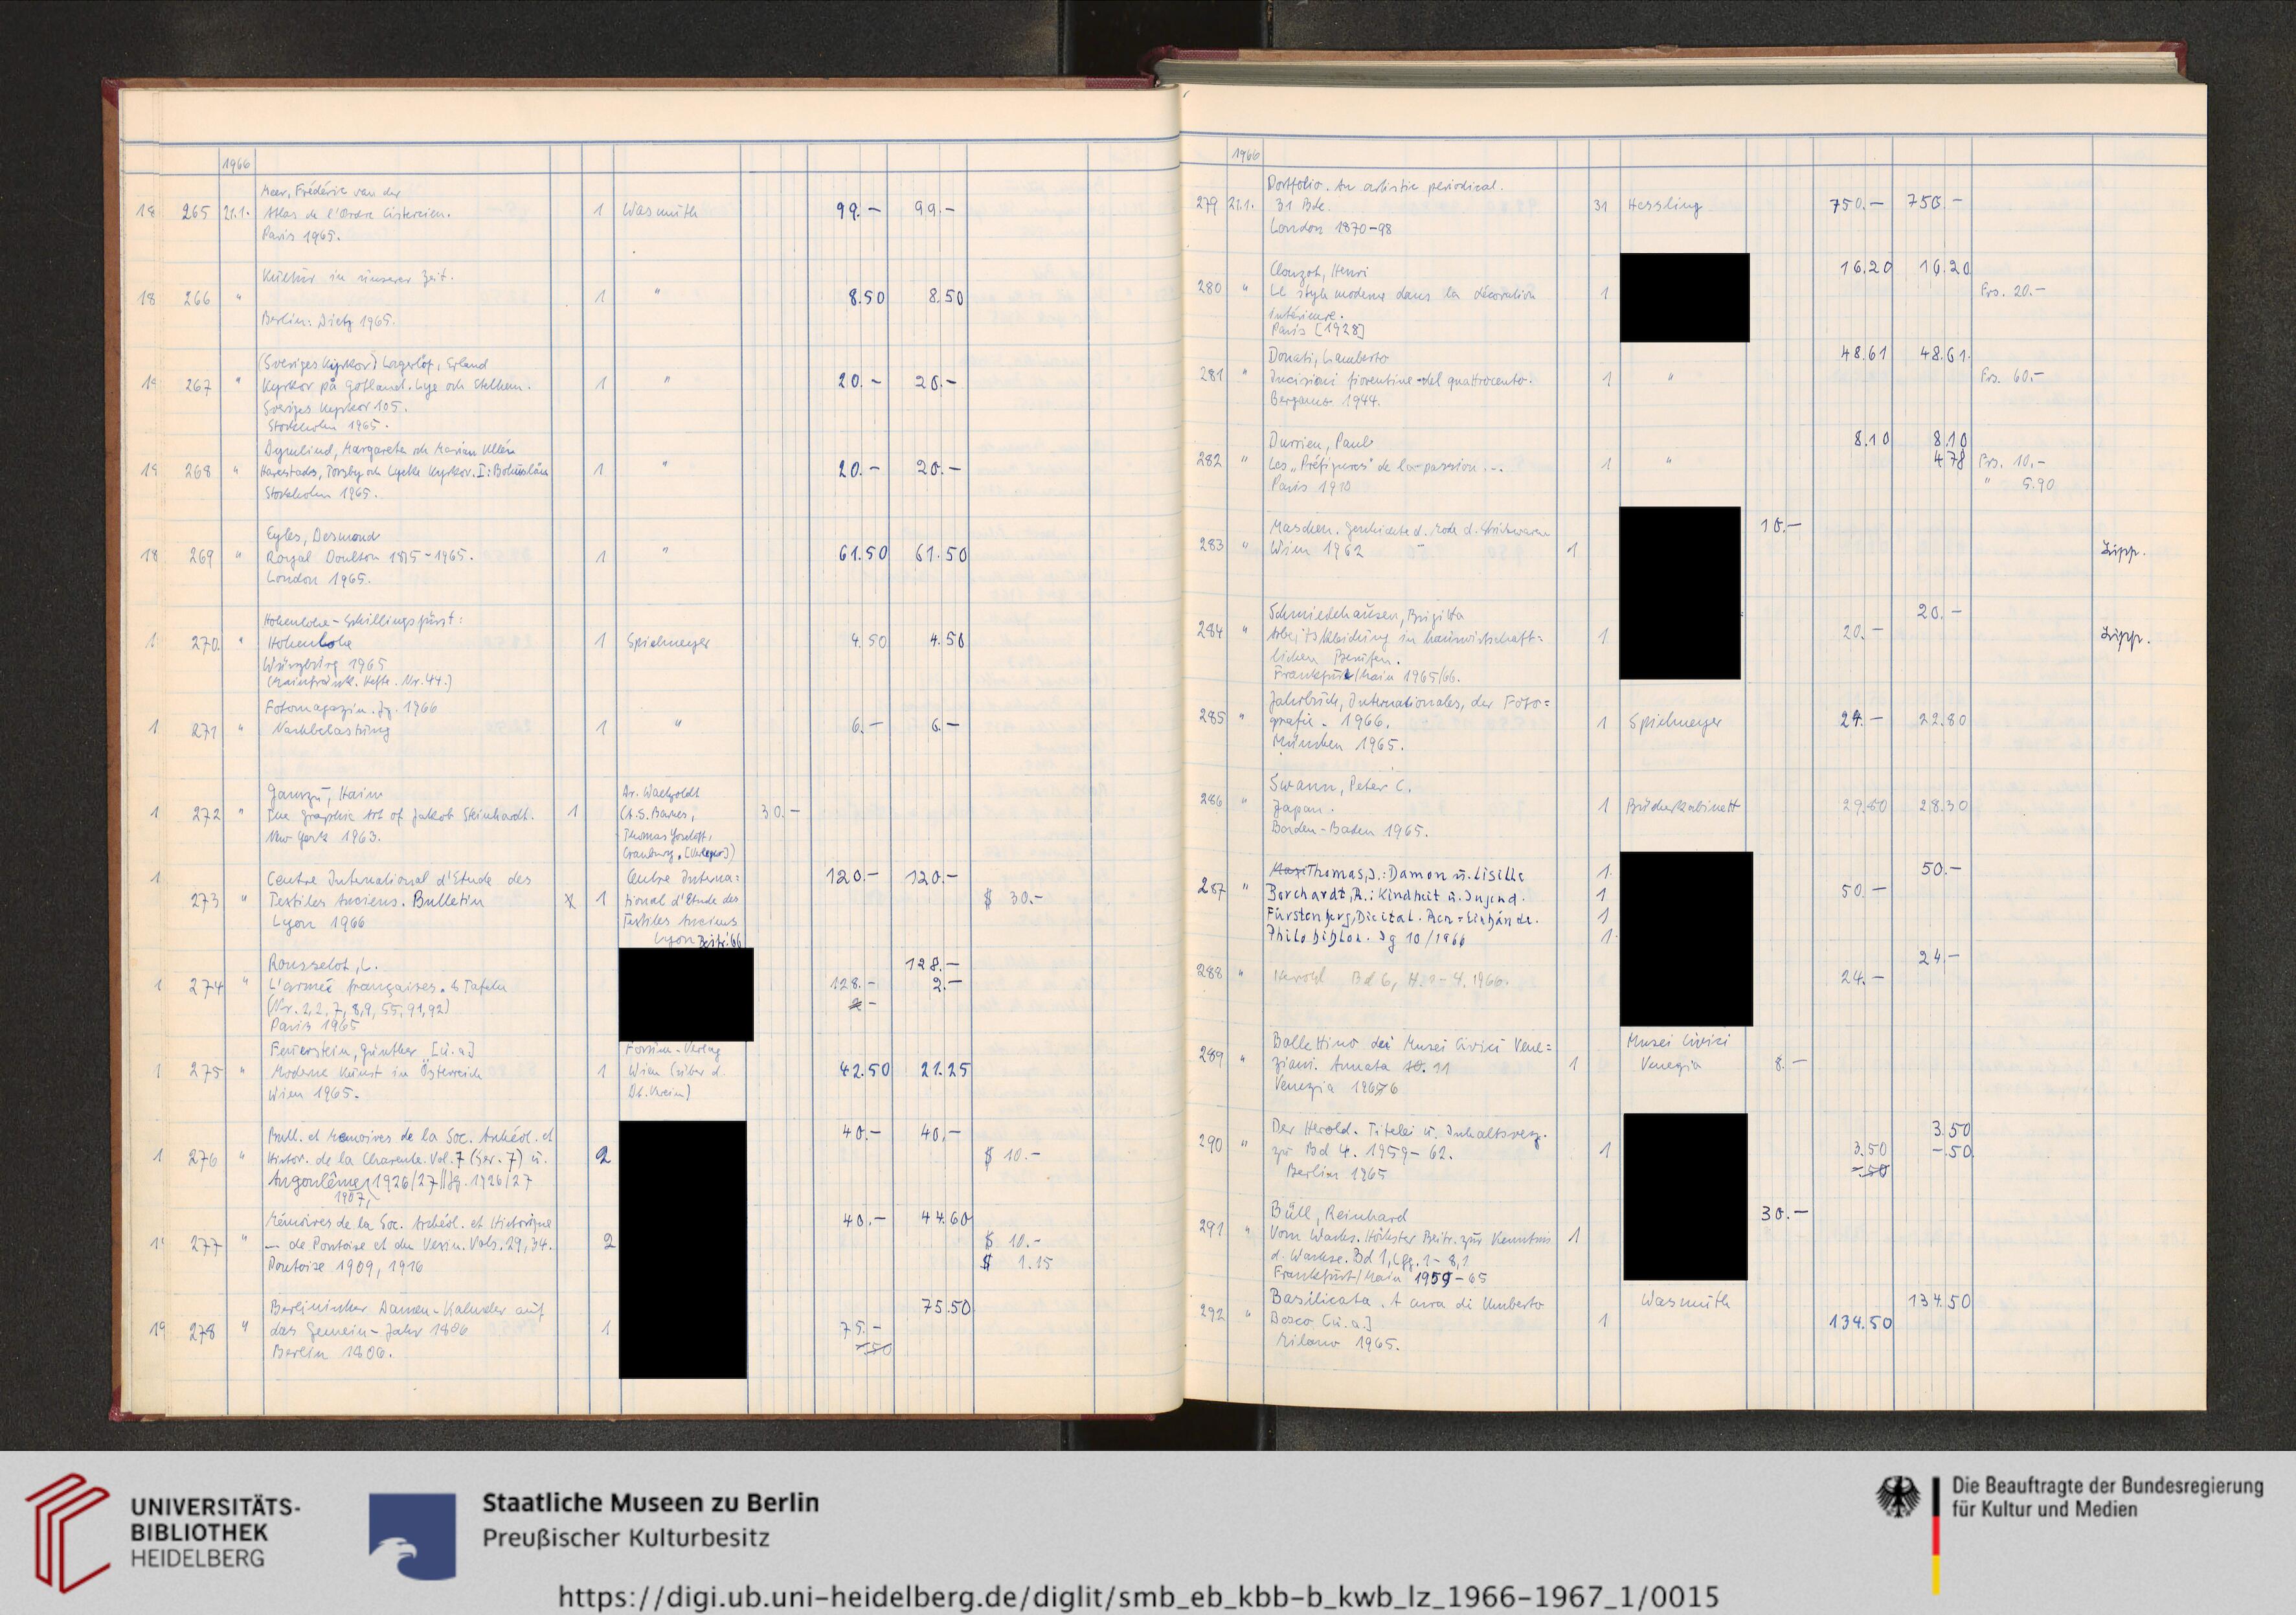 1966
Meer, Frédéric van der
18 265 21.1. Atlas de l'Ordre Cistercien. 1 Wasmuth 99.– 99.–
Paris 1965.
Kultur in unserer Zeit.
18 266 " 1 " 8.50 8.50
Berlin: Dietz 1965.
(Sveriges Kyrkor) Lagerlöf, Erland
267 " Kyrkor på Gotland. Lye och Etelhem. 1 " 20.– 20.–
Sveriges Kyrkor 105.
Stockholm 1965.
Margareta och Marian Ullén
268 " Harestads, Torsby och Lycke Kyrkor. I: Bohuslän 1 " 20.– 20.–
Stockholm 1965.
Eyles, Desmond
18 269 " Royal Doulton 1815–1965. 1 " 61.50 61.50
London 1965.
Hohenlohe-Schillingsfürst:
270 " Hohenlohe 1 Spielmeyer 4.50 4.50
Würzburg 1965
(Mainfränk. Hefte. Nr. 44.)
Fotomagazin. Jg. 1966
1 271 " Nachbelastung 1 " 6.– 6.–
Gamzu, Haim
1 272 " The graphic Art of Jakob Steinhardt. 1 30.–
New York 1963.
Ar. Waetzoldt
(A.S. Barnes,
Thomas Yoseloff,
Cranbury. [Verleger])
1 Centre International d'Etude des Centre Interna= 120.– 120.–
273 " Textiles Anciens. Bulletin 1 tional d'Etude des $ 30.–
Lyon 1966 Textiles Anciens
Lyon Beitr. 66
Rousselot, L. 128.–
1 274 " L'armée françaises. 6 Tafeln 128.– 2.–
(Nr. 2,2,7,8,9,55,91,92)
Paris 1965
Feuerstein, Günther [u.a.] Forum-Verlag
1 275 " Moderne Kunst in Österreich 1 Wien (über d. 42.50 21.25
Wien 1965. Dt. Verein)
Bull. et Memoires de la Soc. Archéol. et 40.– 40.–
1 276 " Histor. de la Charente. Vol. 7 (Ser. 7) u. 2 $ 10.–
Angoulême 1926/27 // Jg. 1926/27
1907,
Mémoires de la Soc. Archéol. et Historique 40.– 44.60
277 " — de Pontoise et du Vexin. Vols. 29, 34. 2 $ 10.–
Pontoise 1909, 1916 $ 1.15
Berlinischer Damen-Kalender auf 75.50
19 278 " das Gemein-Jahr 1806 1 75.–
Berlin 1806.
1966
Portfolio. An artistic periodical.
279 21.1. 31 Bde. 31 Hessling 750.– 750.–
London 1870–98
Clouzot, Henri 16.20 16.20
280 " Le style moderne dans la décoration 1 Frs. 20.–
intérieure.
Paris [1928]
Donati, Lamberto 48.61 48.61
281 " Incisioni fiorentine del quattrocento. 1 " Frs. 60.–
Bergamo 1944.
Durrieu, Paul 8.10 8.10
282 " Les „Préfigures" de la passion... 1 " 478 Frs. 10.–
Paris 1910 " 5.90
Maschen. Geschichte d. Mode d. Strickwaren 10.–
283 " Wien 1962 1 Lipp.
Schmiedehausen, Brigitta 20.–
284 " Arbeitskleidung in hauswirtschaft= 1 20.– Lipp.
lichen Berufen.
Frankfurt/Main 1965/66.
Jahrbuch, Internationales, der Foto=
285 " grafie. 1966. 1 Spielmeyer 24.– 22.80
München 1965.
Swann, Peter C.
286 " Japan. 1 Bücherkabinett 29.80 28.30
Baden-Baden 1965.
Thomas, J.: Damon u. Lisille 1 50.–
287 " Borchardt, R.: Kindheit u. Jugend. 1 50.–
Fürstenberg, Die ital. Ren.=Einbände. 1
Philobiblon. Jg 10/1966 1
24.–
288 " Herold Bd 6, H. 1–4. 1966. 24.–
Bollettino dei Musei Civici Vene= Musei Civici
289 " ziani. Annata 10. 11 1 Venezia 8.–
Venezia 1966
Der Herold. Titelei u. Inhaltsverz. 3.50
290 " zu Bd 4. 1959–62. 1 3.50 –.50
Berlin 1965 –.50
Büll, Reinhard 30.–
291 " Vom Wachs. Höchster Beitr. zur Kenntnis 1
d. Wachse. Bd 1, Lfg. 1–8,1
Frankfurt/Main 1959–65
Basilicata. A cura di Umberto Wasmuth 134.50
292 " Bosco [u.a.] 1 134.50
Milano 1965.
UNIVERSITÄTS-
BIBLIOTHEK
HEIDELBERG
Staatliche Museen zu Berlin
Preußischer Kulturbesitz
Die Beauftragte der Bundesregierung
für Kultur und Medien
https://digi.ub.uni-heidelberg.de/diglit/smb_eb_kbb-b_kwb_lz_1966-1967_1/0015